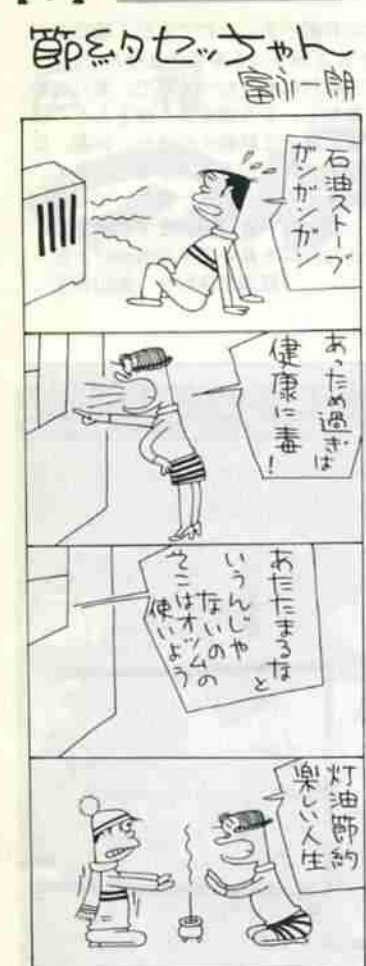 節約セッちゃん
富永一朗
石油ストーブ
ガンガンガン
あっため過ぎは
健康に毒!
あたたまるなと
いうんじゃ
ないの
そこはオツムの
使いよう
灯油節約
楽しい人生